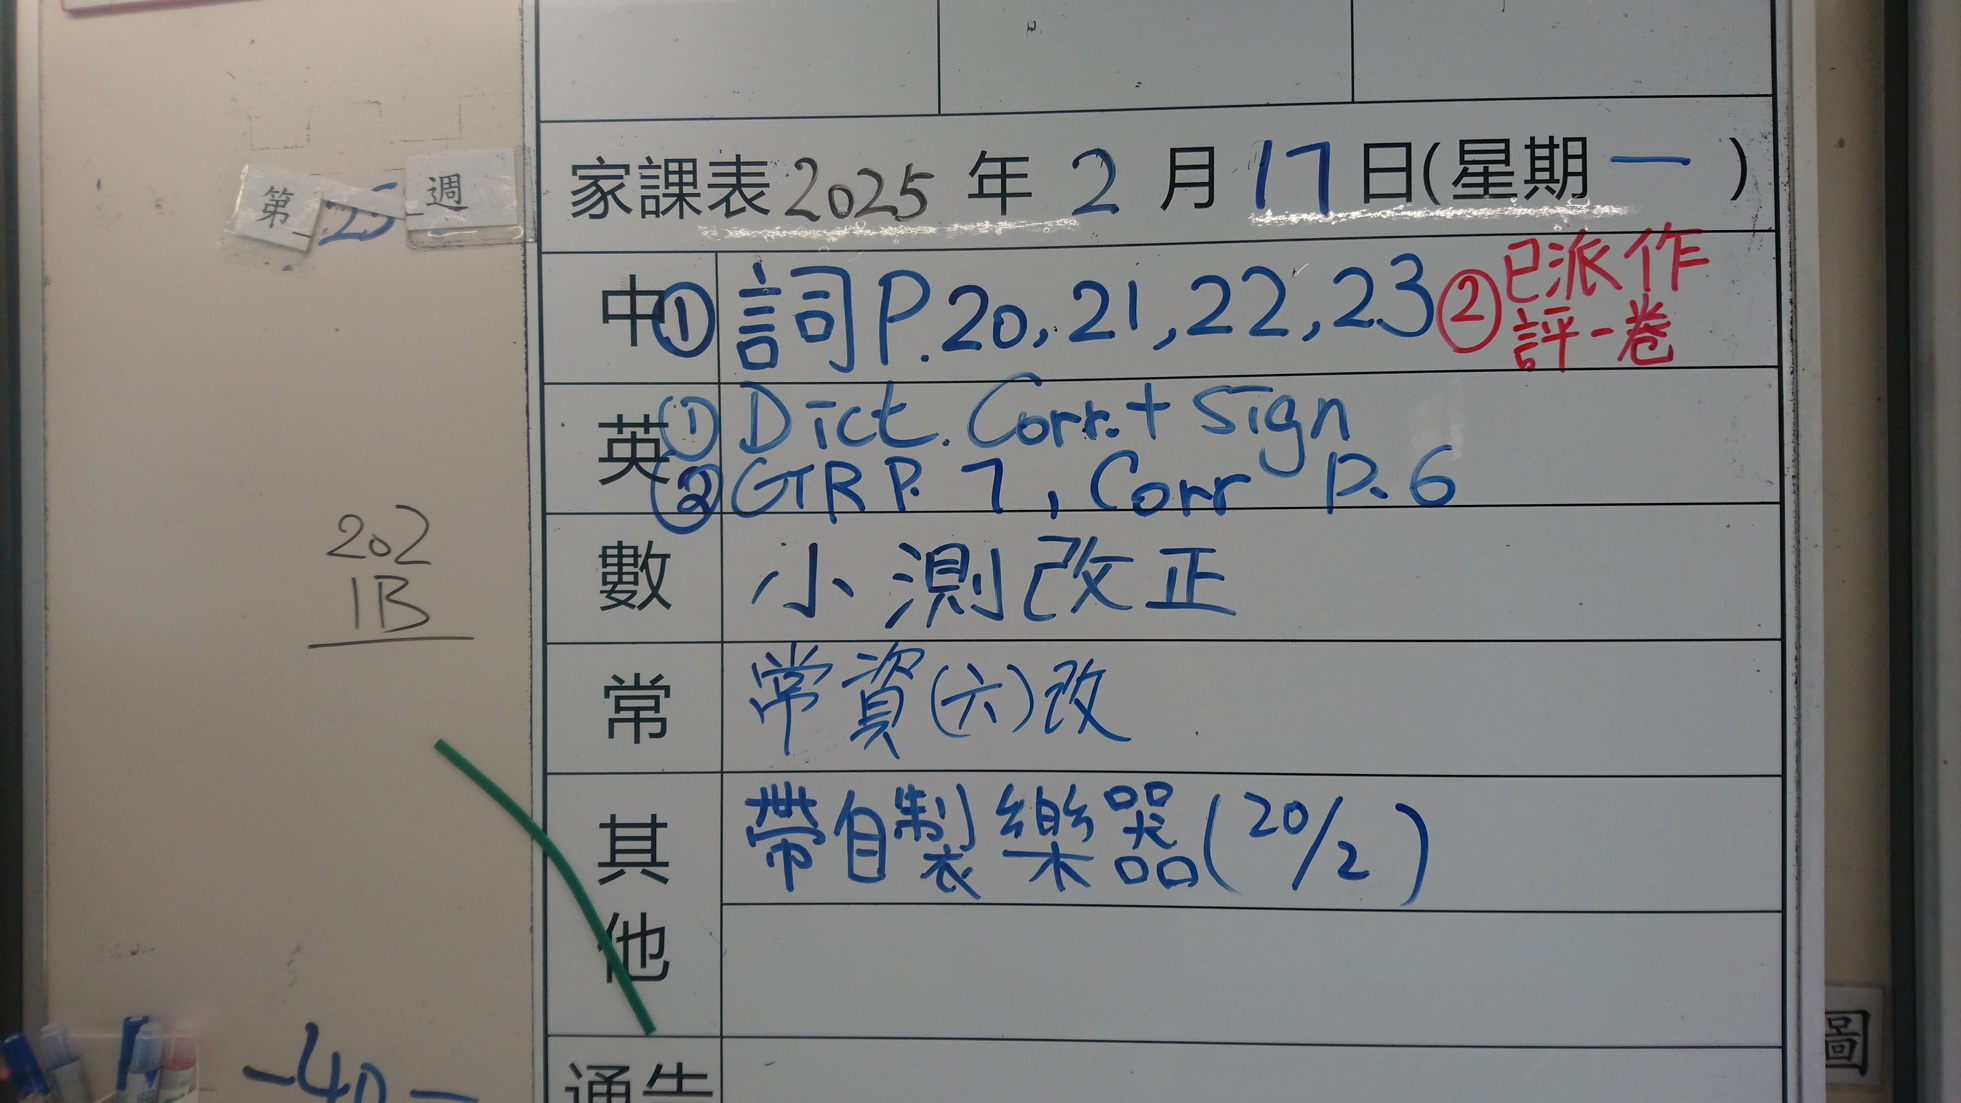 第 25 週
家課表 2025 年 2 月 17 日(星期 一 )
中 ① 詞 P.20, 21, 22, 23 ② 已派作
評一卷
英 ① Dict. Corr. + Sign
② GTR P. 7, Corr P. 6
202
1B
數 小測改正
常 常資(六)改
其他 帶自製樂器(20/2)
圖
-40-
通告